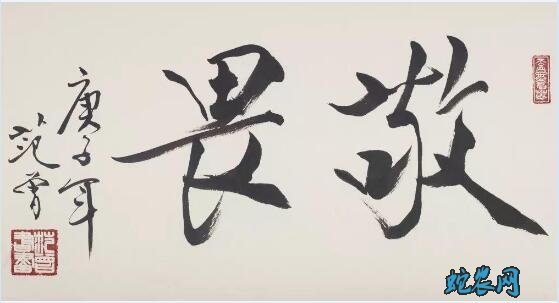 敬畏
庚子年
范曾
蛇农网